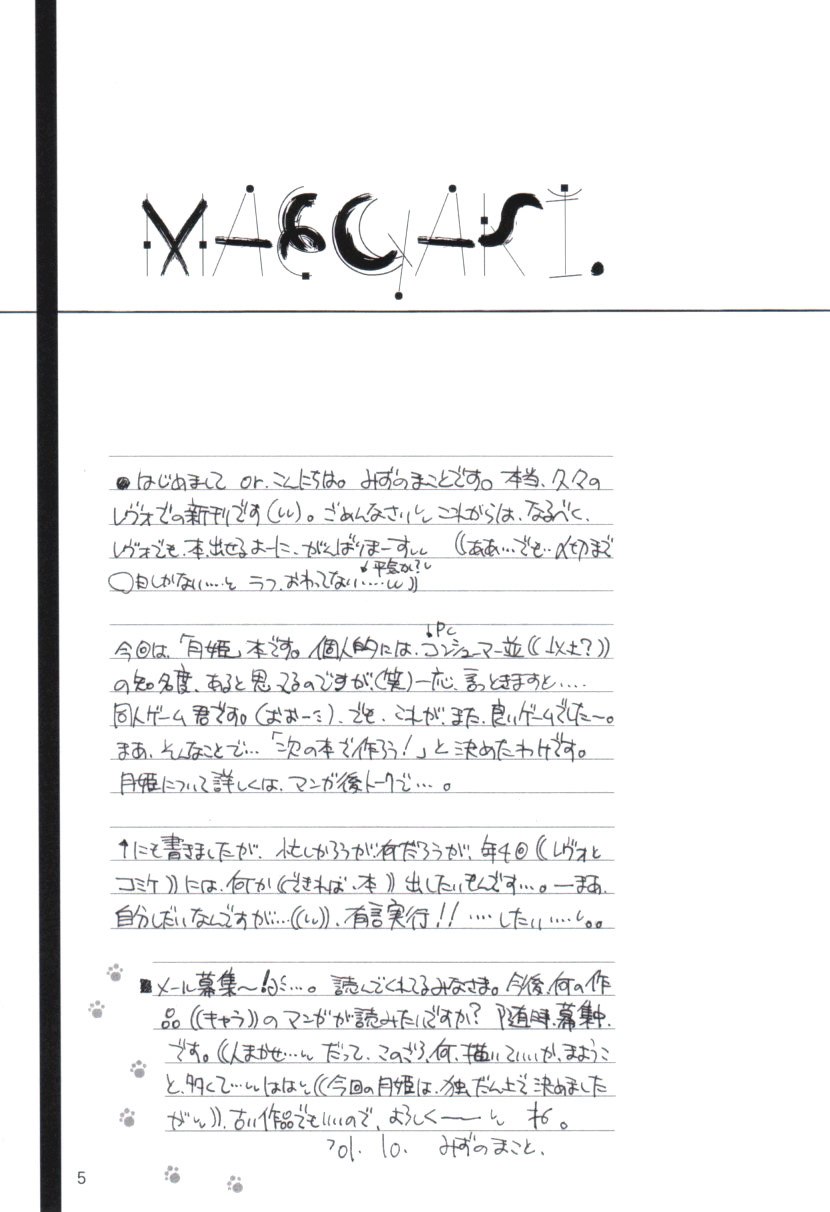 MAEGAKI.
●はじめまして or. こんにちは。 みずのまことです。 本当、久々の
レヴォでの新刊です(しし)。ごめんなさいしし これからは、なるべく、
レヴォでも、本、出せるよーに、がんばりまーすしし ((ああ…でも…〆切まで
↓平気か?し
◯日しかない…。と ラフ、おわってない…しし))
↓PC
今回は、「月姫」本です。個人的には、コンシューマー並((以上?))
の知名度、あると思ってるのですが、(笑)一応、言っときますと....
同人ゲーム君です。(おおーミ)、でも、これが、また、良いゲームでした〜。
まあ、そんなことで…「次の本で作ろう!」と決めたわけです。
月姫について詳しくは、マンガ後トークで…。
↑にも書きましたが、忙しかろうが、何だろうが、年4回((レヴォと
コミケ))には、何か((できれば、本))出したいもんです…。—まあ、
自分しだいなんですが…((しし))、有言実行!! ‥‥したい‥‥し。。
■メール募集〜!…。 読んでくれてるみなさま。今後、何の作
品((キャラ))のマンガが読みたいですか? 随時、募集中、
です。((人まかせ…しし だって、このごろ、何、描いていいか、まようこ
と、多くて…しし ははし((今回の月姫は、独だん上で決めました
がしし))、古い作品でもいいので、よろしく——しし ね。
'01. 10. みずのまこと、
5